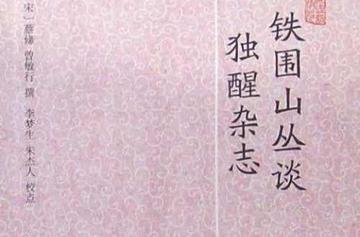 铁围山丛谈
独醒杂志
宋〕蔡絛 曾敏行 撰 李梦生 朱杰人 校点